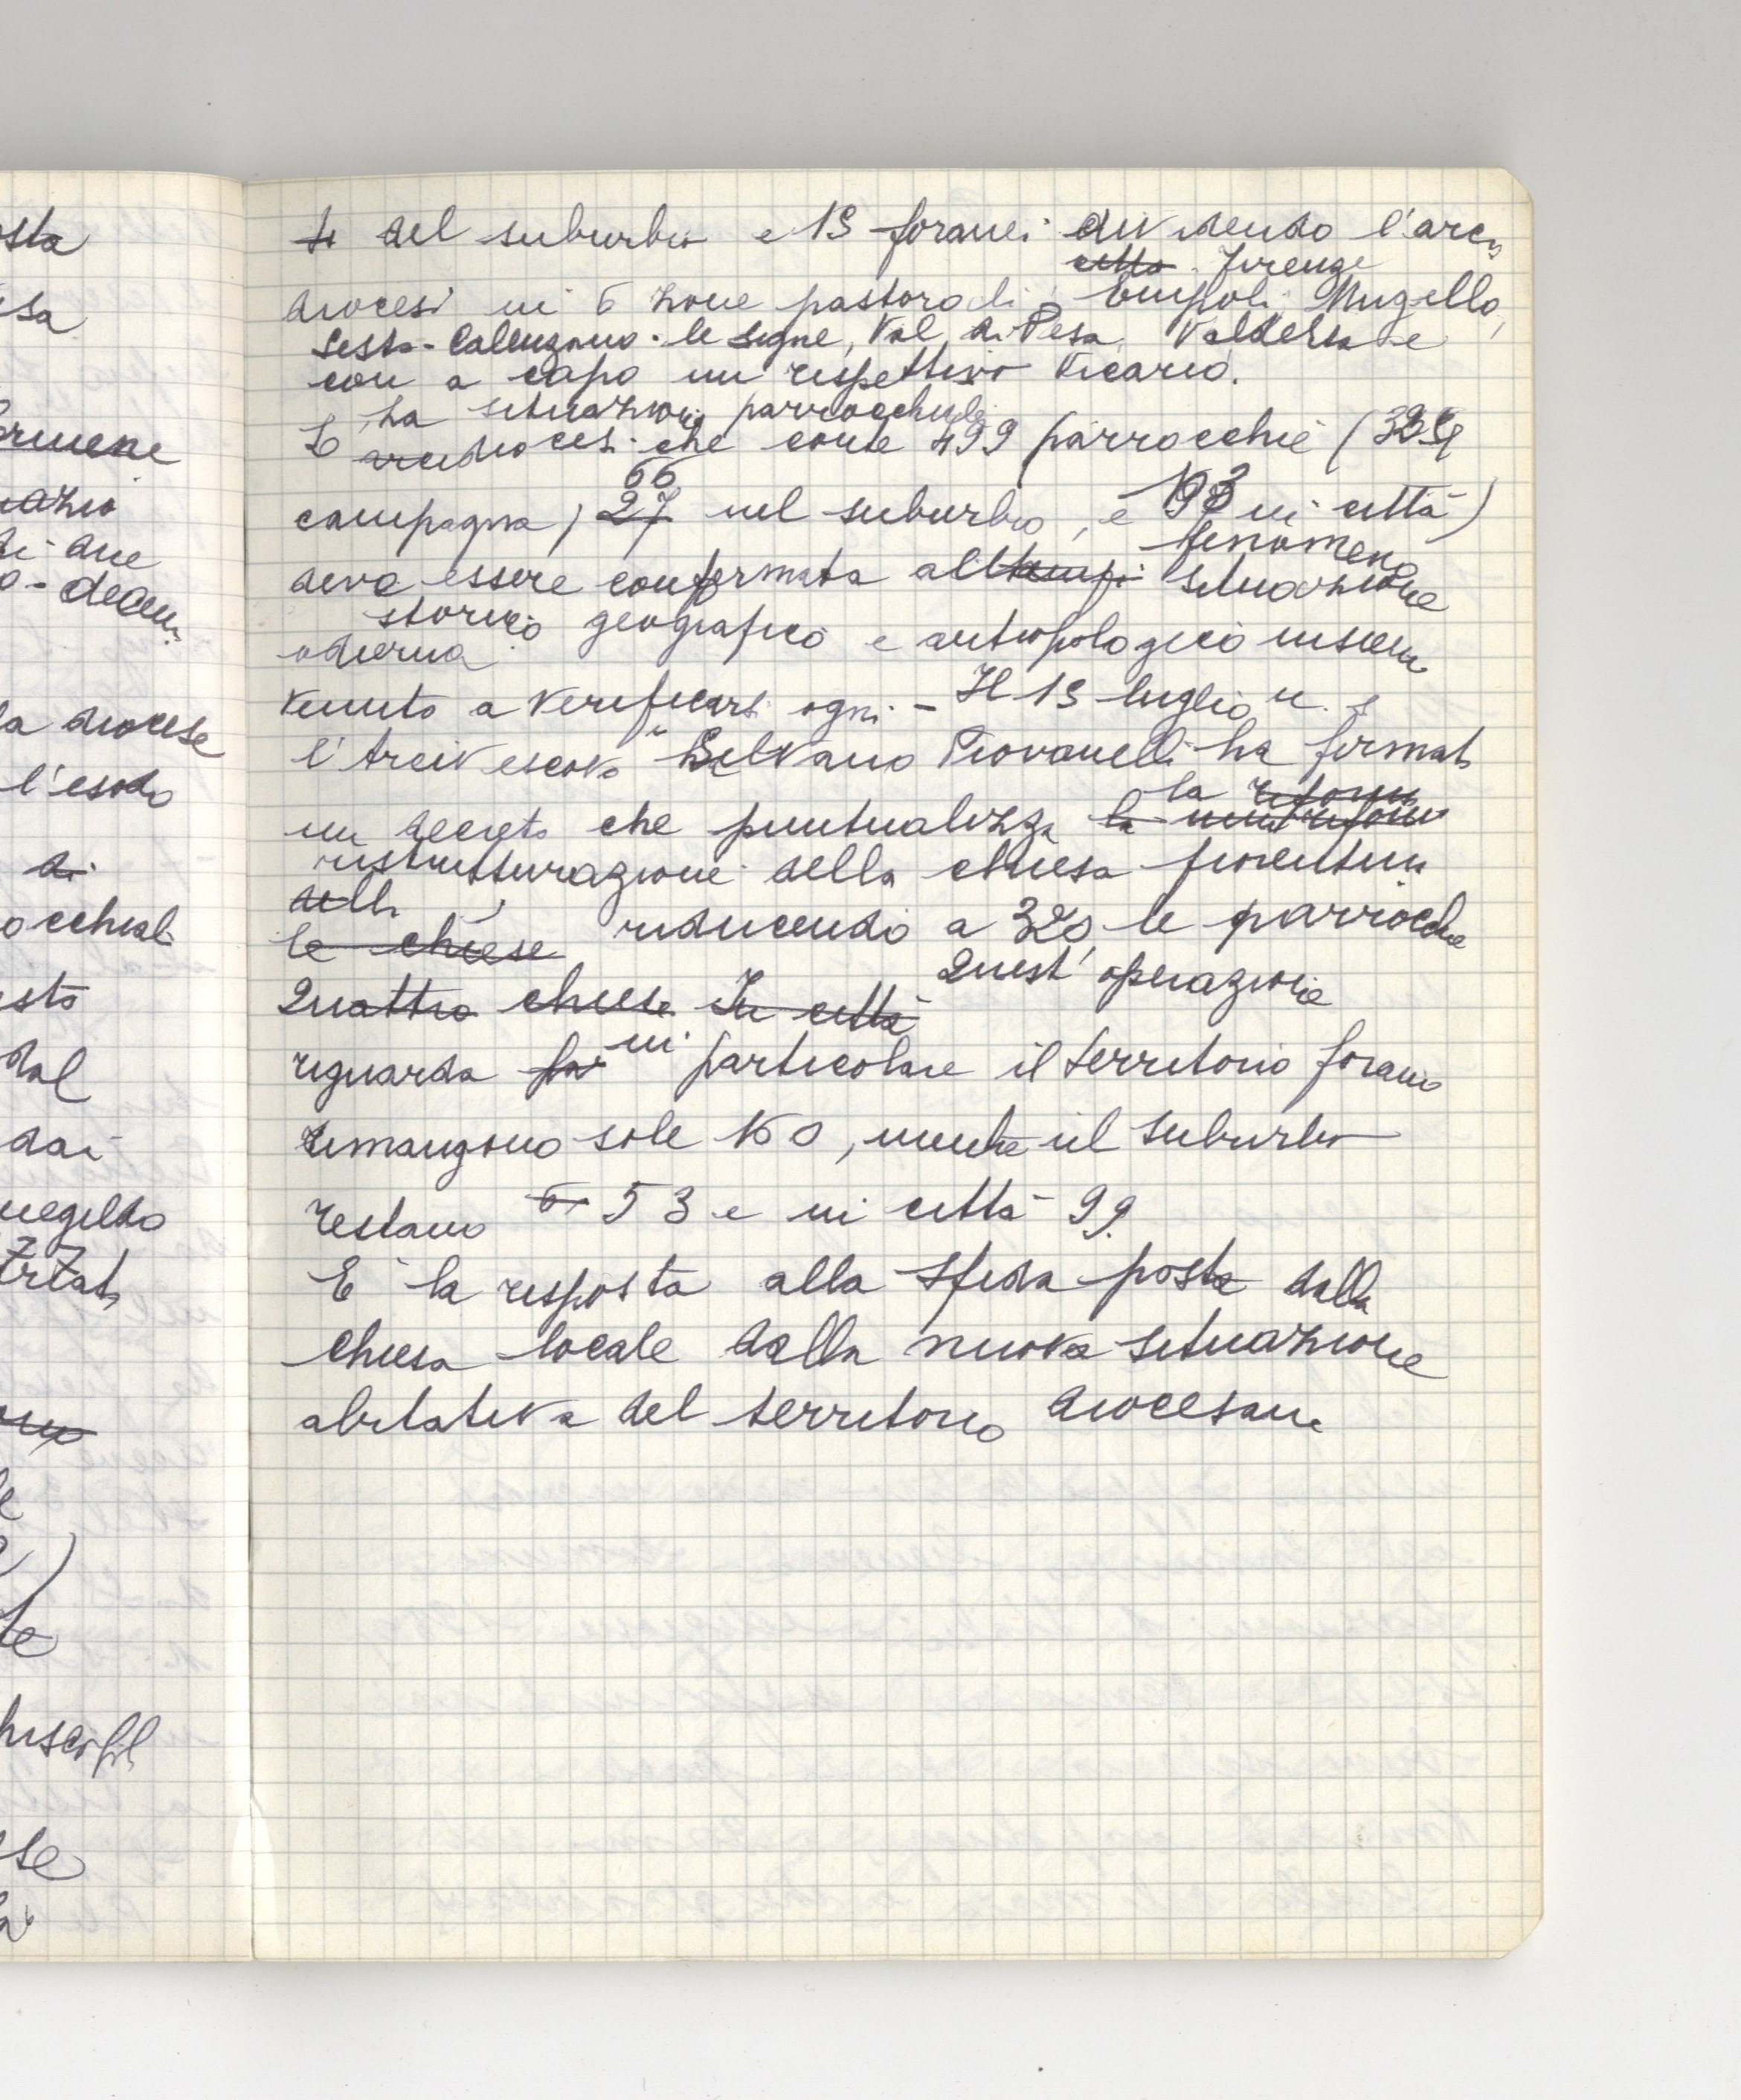 osta
esa
di due
la diocese
l'esodo
di
occhiali
dal
dai
te
se
ti del suburbio e 13 foranei dividendo l'arci
città. Firenze
diocesi in 6 zone pastorali: Empoli, Mugello,
Sesto - Calenzano - le Signe, Val di Pesa, Valdelsa e
con a capo un rispettivo Vicario.
La situazione parrocchiale
L' arcidiocesi che conta 499 parrocchie (
66
campagna, 27 nel suburbio, e in città)
fenomeno
deve essere conformata all tempi situazione
storico geografico e antropologico insieme
odierna
venuto a verificarsi ogni - Il 13 luglio u. s.
l'Arcivescovo Silvano Piovanelli ha firmato
la riforma
un decreto che puntualizza la
ristrutturazione della chiesa fiorentina
della
le chiese riducendo a 320 le parrocchie
Quest' operazione
Quattro chiese In città
in
riguarda par particolare il territorio foraneo
rimangono sole 160, mentre nel suburbio
restano 6 53 e in città 99.
E' la risposta alla sfida posta dalla
chiesa locale dalla nuova situazione
abitativa del territorio diocesano